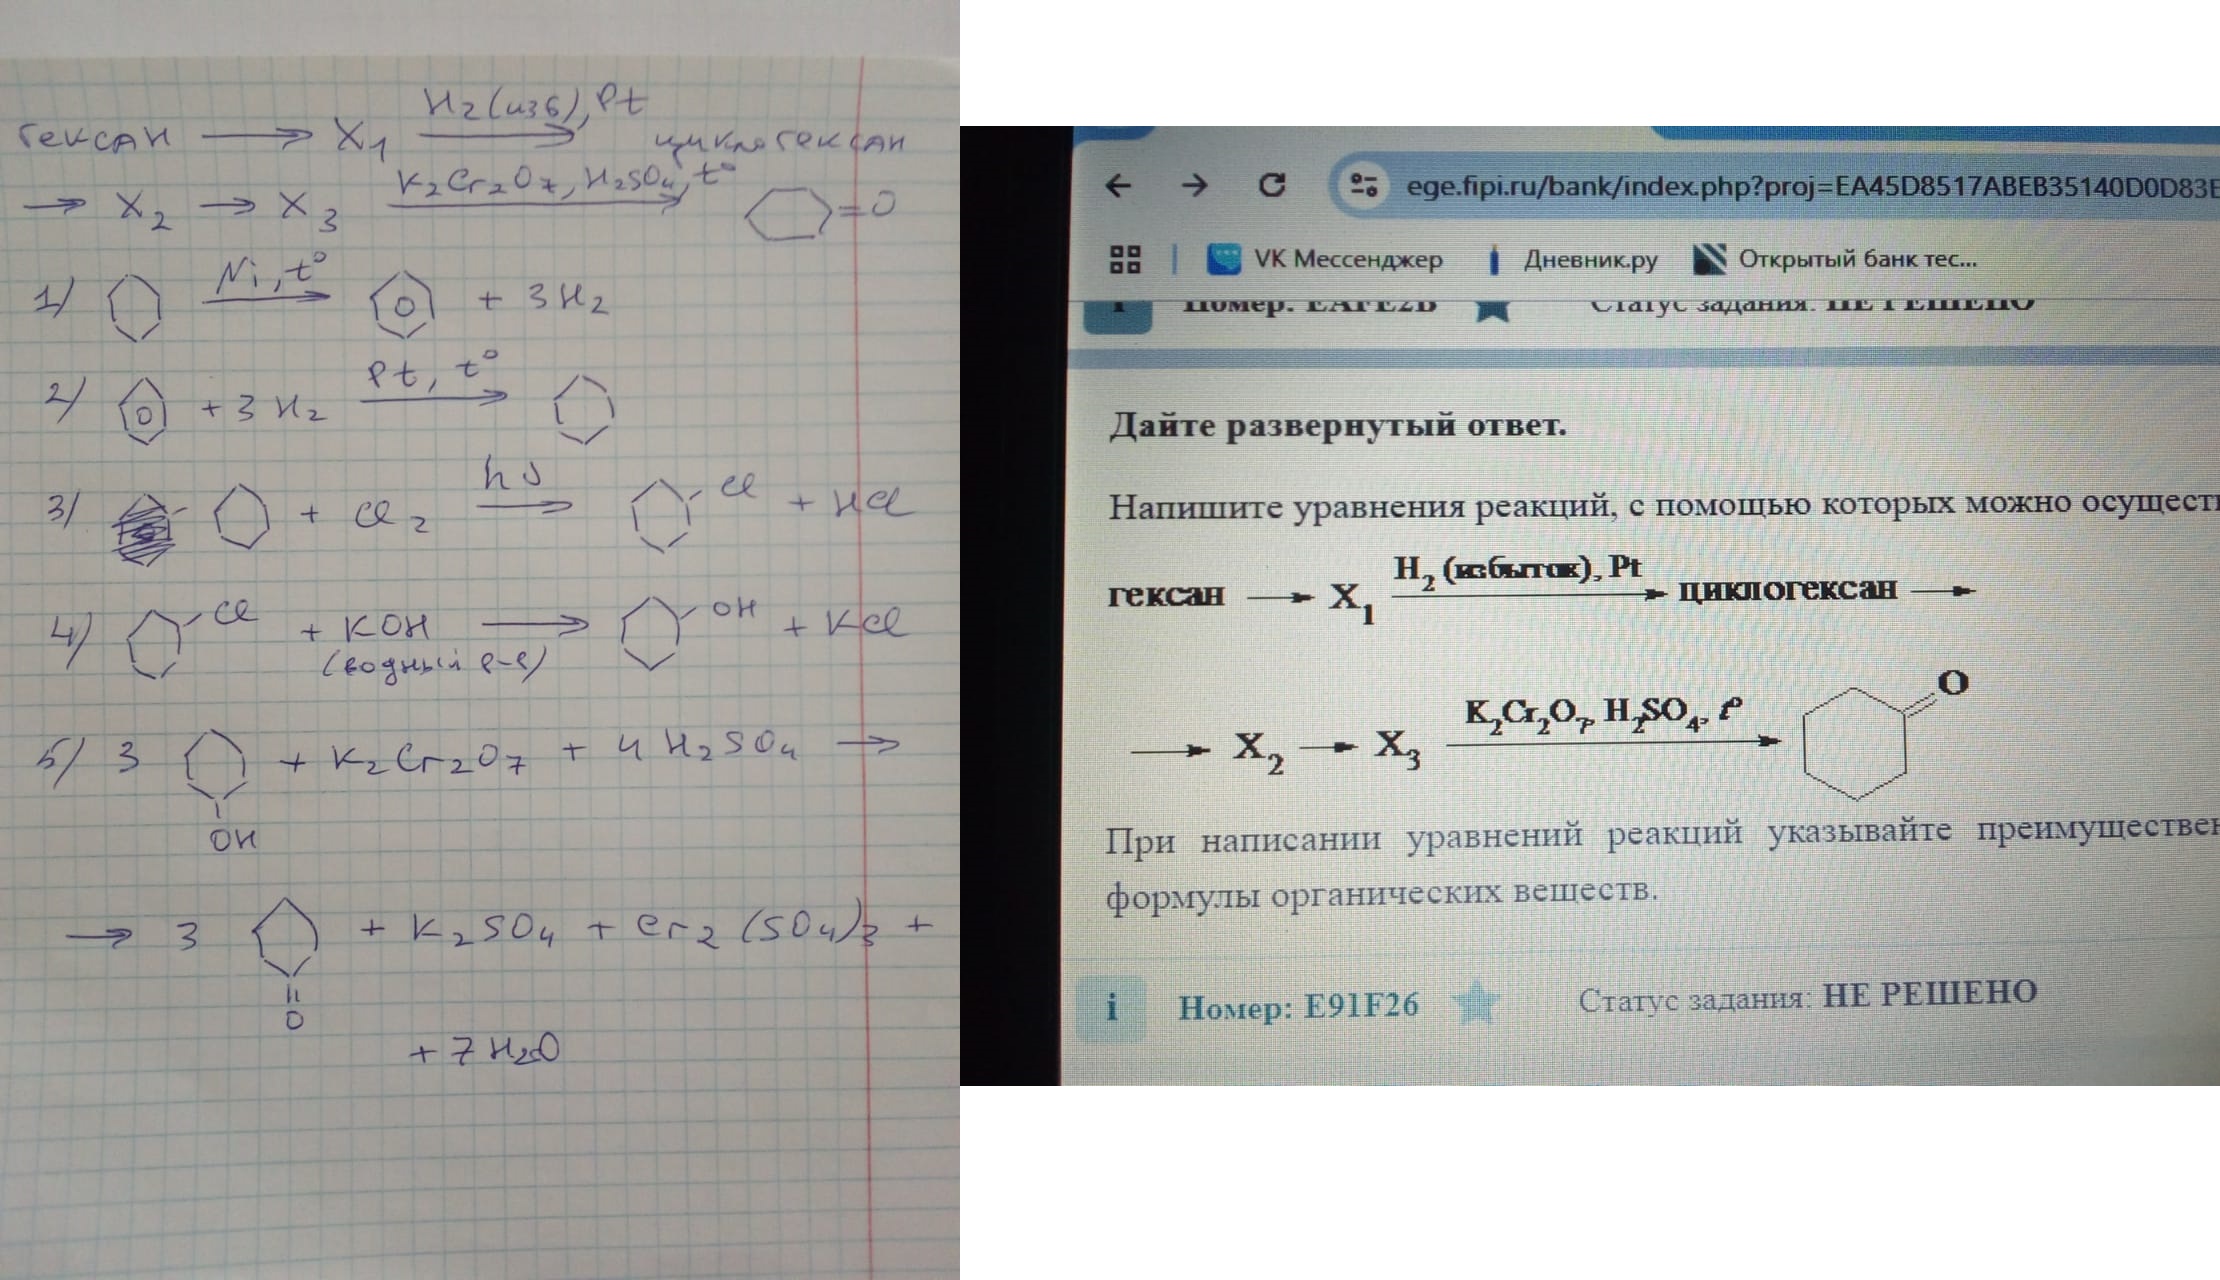 гексан → X₁ H₂(изб), Pt → циклогексан
→ X₂ → X₃ K₂Cr₂O₇, H₂SO₄, t° → =O
1) Ni, t° → + 3H₂
2) + 3H₂ Pt, t° →
3) + Cl₂ hν → Cl + HCl
4) Cl + KOH (водный р-р) → OH + KCl
5) 3 OH + K₂Cr₂O₇ + 4H₂SO₄ →
→ 3 O + K₂SO₄ + Cr₂(SO₄)₃ +
+ 7H₂O
ege.fipi.ru/bank/index.php?proj=EA45D8517ABEB35140D0D83E
VK Мессенджер Дневник.ру Открытый банк тес...
Статус задания: НЕ РЕШЕНО
Дайте развернутый ответ.
Напишите уравнения реакций, с помощью которых можно осущест
гексан → X₁ H₂ (избыток), Pt → циклогексан →
→ X₂ → X₃ K₂Cr₂O₇, H₂SO₄, t° → O
При написании уравнений реакций указывайте преимуществен
формулы органических веществ.
i Номер: E91F26 Статус задания: НЕ РЕШЕНО